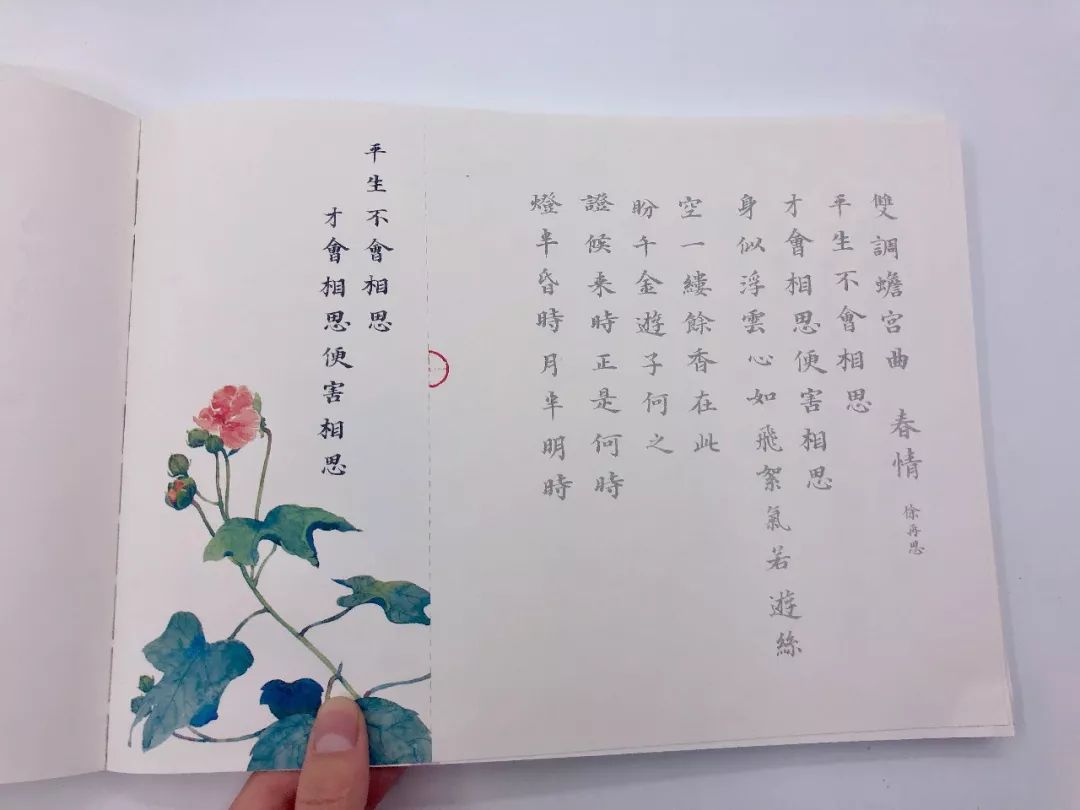 雙調蟾宮曲 春情 徐再思
平生不會相思
才會相思便害相思
身似浮雲心如飛絮氣若遊絲
空一縷餘香在此
盼千金遊子何之
證候来時正是何時
燈半昏時月半明時
平生不會相思
才會相思便害相思